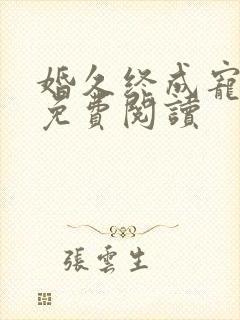 婚久终成寵
免費閱讀
張雲生